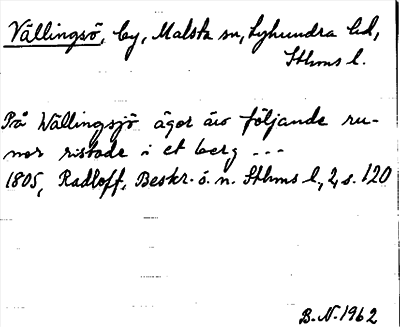 Vällingsö, by, Malsta sn, Lyhundra hd,
Sthms l.
På Wällingsjö ägor äro följande ru-
nor ristade i et berg ---
1805, Radloff, Beskr. ö. n. Sthms l., 2, s. 120
B.N. 1962